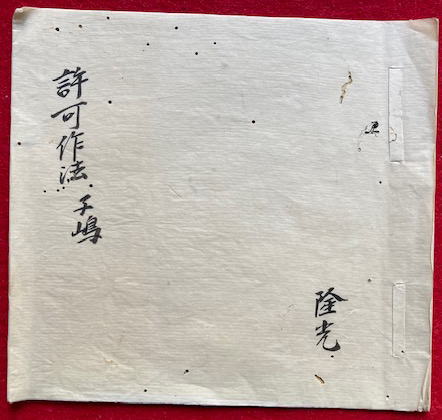 許可作法 子嶋
隆光